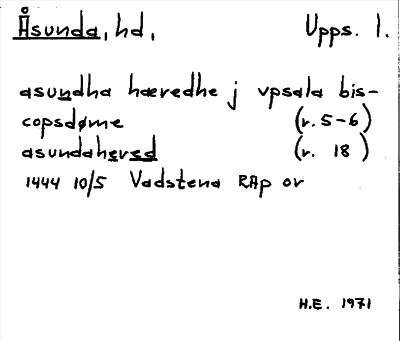 Åsunda, hd, Upps. l.
asundha hæredhe j vpsala bis-
copsdøme (r. 5-6)
asundahered (r. 18)
1444 10/5 Vadstena RAp or
H.E. 1971